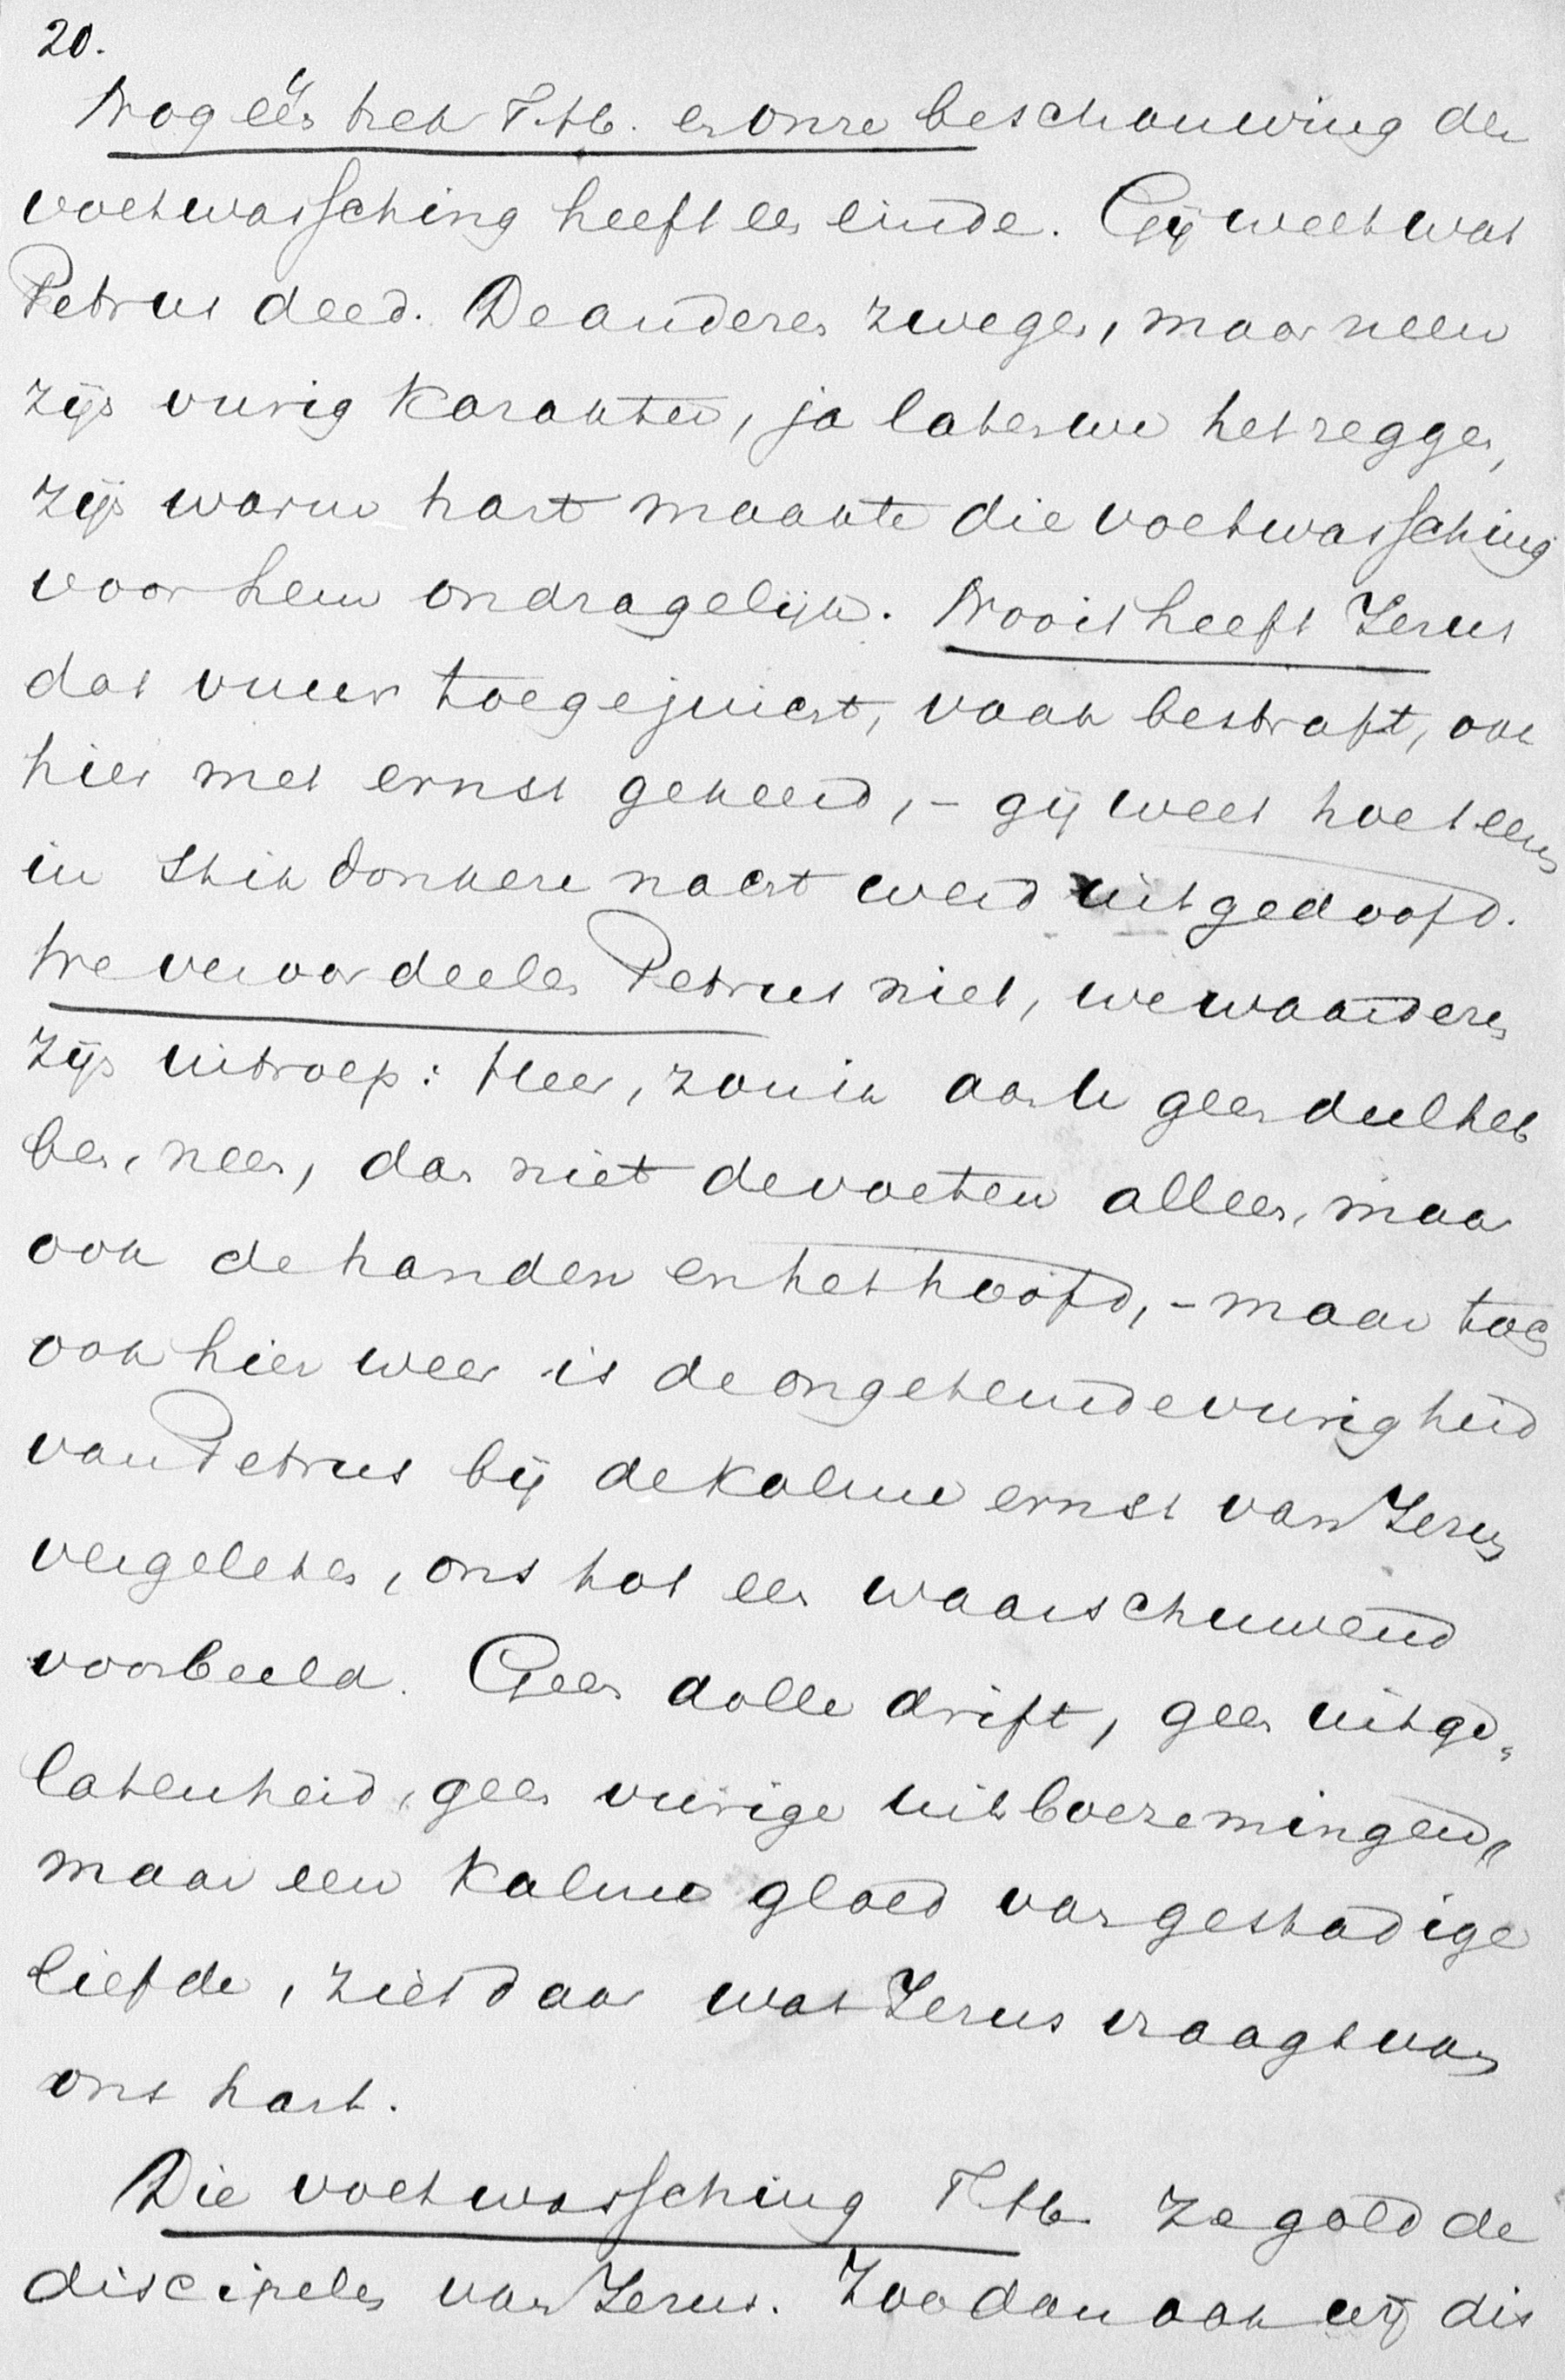 20.
Nog één trek T. H. en onze beschouwing der
voetwassching heeft een einde. Gij weet wat
Petrus deed. De anderen zwegen, maar neen
zijn vurig karakter, ja laten we het zeggen,
zijn warm hart maakte die voetwassching
voor hem ondragelijk. Nooit heeft Jezus
dat vuur toegejuicht, vaak bestraft, ook
hier met ernst gekeerd, - gij weet hoe 't eens
in stikdonkere nacht werd uitgedoofd.
We veroordeelen Petrus niet, we waarderen
zijn uitroep: Heer, zou ik aan U geen deel heb
ben, neen, dan niet de voeten alleen, maar
ook de handen en het hoofd, - maar toch
ook hier weer is de ongetemde vurigheid
van Petrus bij de kalme ernst van Jezus
vergeleken, ons tot een waarschuwend
voorbeeld. Geen dolle drift, geen uitge„
latenheid, geen vurige uitboezemingen,
maar een kalme gloed van gestadige
liefde, ziet daar wat Jezus vraagt van
ons hart.
Die voetwassching T. H. ze gold de
discipelen van Jezus. Zoo dan ook wij dis